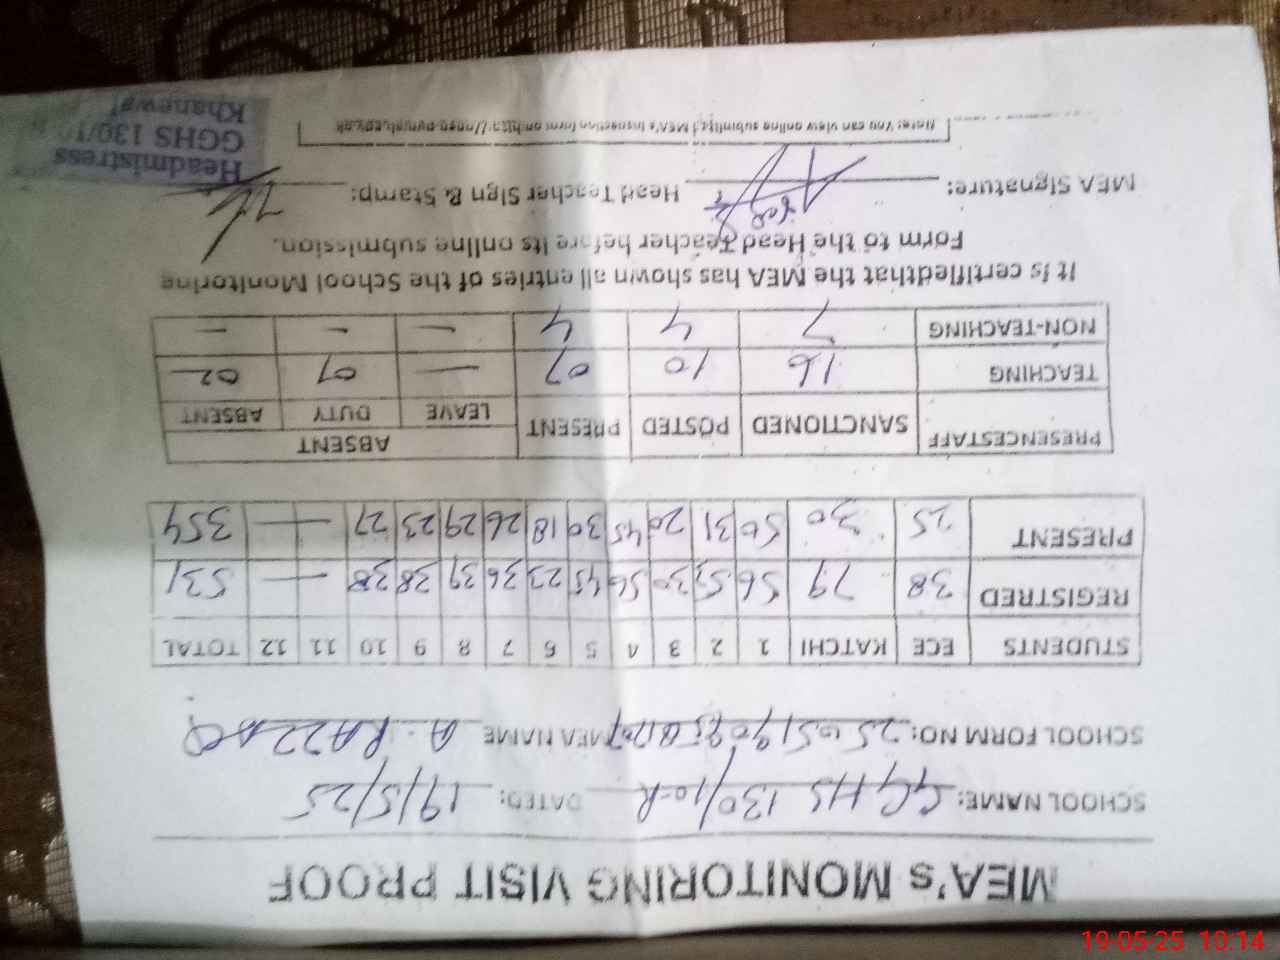 MEA's MONITORING VISIT PROOF
SCHOOL NAME: GGHS 130/10-R DATED: 19/5/25
SCHOOL FORM NO: MEA NAME A. RAZZAQ
STUDENTS ECE KATCHI 1 2 3 4 5 6 7 8 9 10 11 12 TOTAL
REGISTRED 38 79 56 53 30 56 45 23 36 39 38 38 — 531
PRESENT 25 30 50 31 20 45 30 18 26 29 23 27 — 354
PRESENCESTAFF SANCTIONED POSTED PRESENT ABSENT
LEAVE DUTY ABSENT
TEACHING 16 10 07 — 01 02
NON-TEACHING 7 4 4 — — —
It is certifiedthat the MEA has shown all entries of the School Monitoring
Form to the Head Teacher before its online submission.
MEA Signature: Head Teacher Sign & Stamp:
Headmistress
GGHS 130/10
Khanewal
Note: You can view online submitted MEA's Inspection form on
19-05-25 10:14